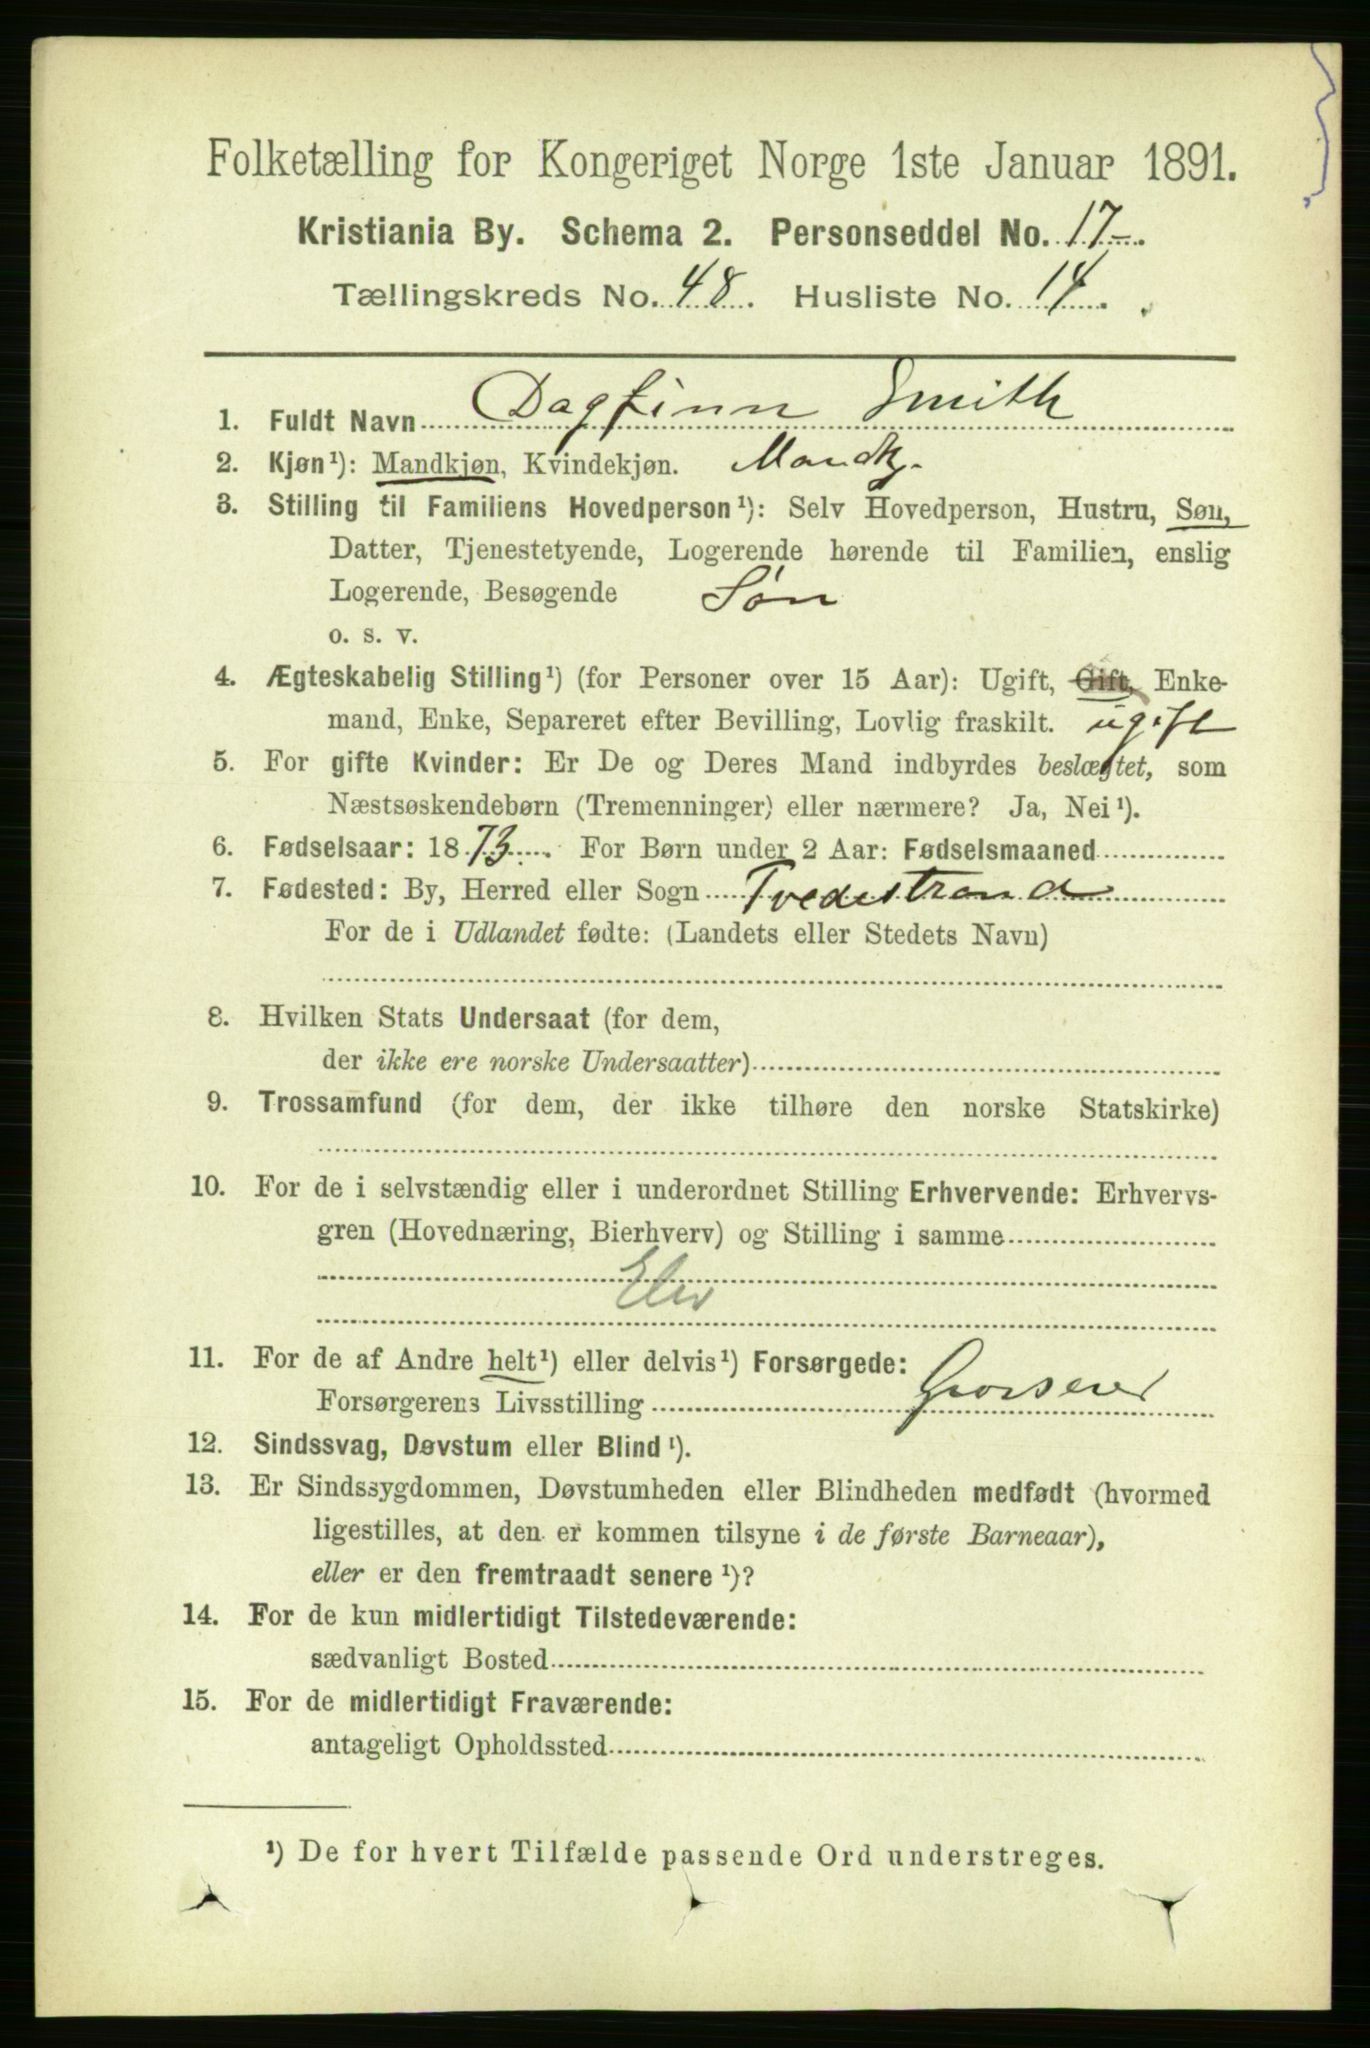 Folketælling for Kongeriget Norge 1ste Januar 1891.
Kristiania By. Schema 2. Personseddel No. 17-.
Tællingskreds No. 48. Husliste No. 14.
1. Fuldt Navn Dagfinn Smith
2. Kjøn¹): Mandkjøn, Kvindekjøn. Mandkj.
3. Stilling til Familiens Hovedperson¹): Selv Hovedperson, Hustru, Søn,
Datter, Tjenestetyende, Logerende hørende til Familien, enslig
Logerende, Besøgende Søn
o. s. v.
4. Ægteskabelig Stilling¹) (for Personer over 15 Aar): Ugift, Gift, Enke-
mand, Enke, Separeret efter Bevilling, Lovlig fraskilt. ugift
5. For gifte Kvinder: Er De og Deres Mand indbyrdes beslægtet, som
Næstsøskendebørn (Tremenninger) eller nærmere? Ja, Nei¹).
6. Fødselsaar: 1873. For Børn under 2 Aar: Fødselsmaaned
7. Fødested: By, Herred eller Sogn Tvedestrand
For de i Udlandet fødte: (Landets eller Stedets Navn)
8. Hvilken Stats Undersaat (for dem,
der ikke ere norske Undersaatter)
9. Trossamfund (for dem, der ikke tilhøre den norske Statskirke)
10. For de i selvstændig eller i underordnet Stilling Erhvervende: Erhvervs-
gren (Hovednæring, Bierhverv) og Stilling i samme
Elev
11. For de af Andre helt¹) eller delvis¹) Forsørgede:
Forsørgerens Livsstilling Grosserer
12. Sindssvag, Døvstum eller Blind¹).
13. Er Sindssygdommen, Døvstumheden eller Blindheden medfødt (hvormed
ligestilles, at den er kommen tilsyne i de første Barneaar),
eller er den fremtraadt senere¹)?
14. For de kun midlertidigt Tilstedeværende:
sædvanligt Bosted
15. For de midlertidigt Fraværende:
antageligt Opholdssted
¹) De for hvert Tilfælde passende Ord understreges.